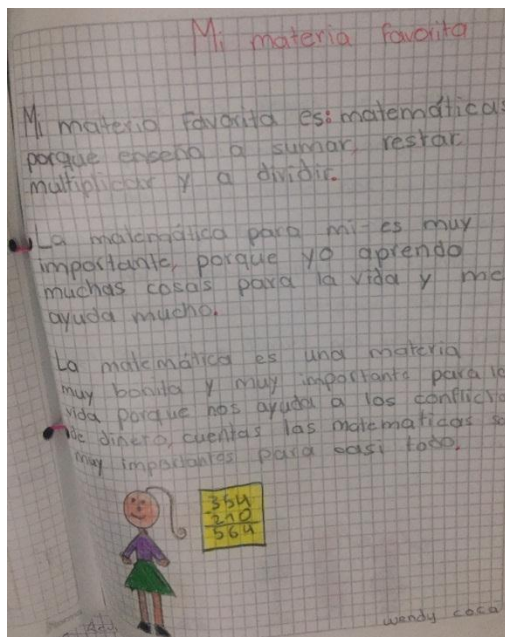 Mi materia favorita
Mi materia favorita es: matemáticas
porque enseña a sumar, restar
multiplicar y a dividir.
La matemática para mi es muy
importante, porque yo aprendo
muchas cosas para la vida y me
ayuda mucho.
La matemática es una materia
muy bonita y muy importante para la
vida porque nos ayuda a los conflicto
de dinero, cuentas las matematicas so
muy importantes para casi todo.
354
210
564
wendy coca